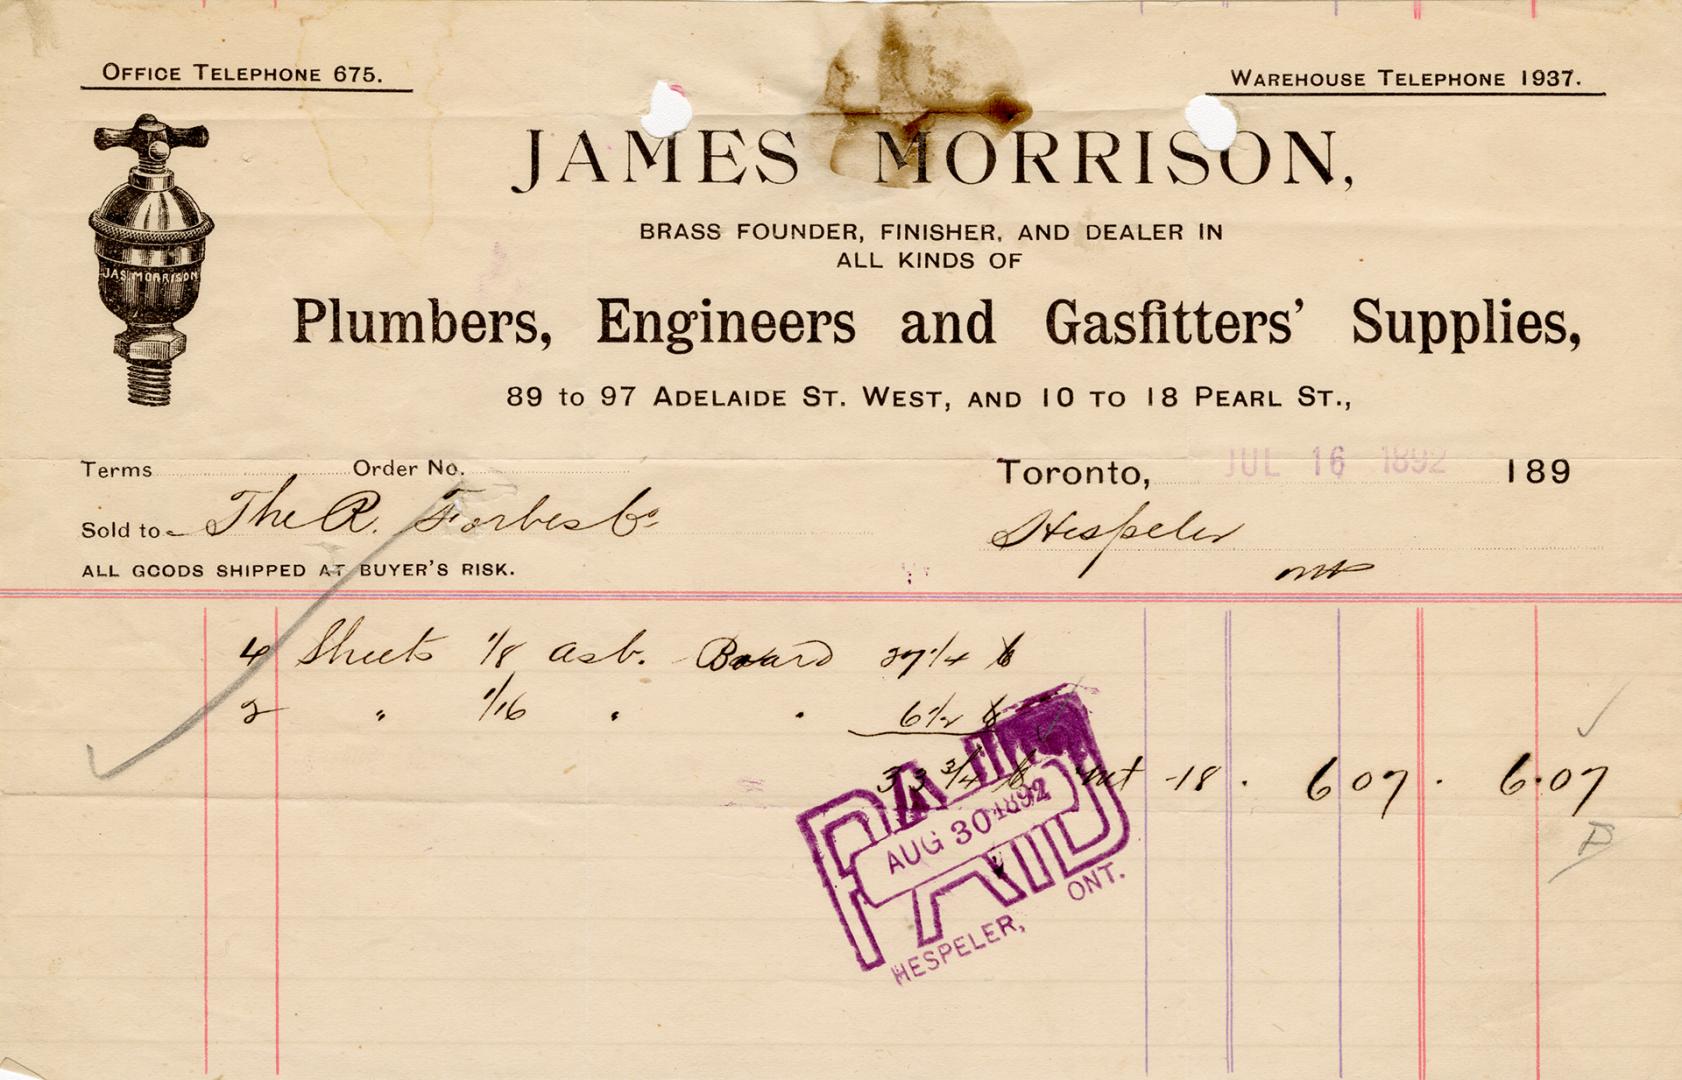 OFFICE TELEPHONE 675.
WAREHOUSE TELEPHONE 1937.
JAMES MORRISON,
JAS MORRISON
BRASS FOUNDER, FINISHER, AND DEALER IN
ALL KINDS OF
Plumbers, Engineers and Gasfitters' Supplies,
89 to 97 ADELAIDE ST. WEST, AND 10 TO 18 PEARL ST.,
Terms Order No. Toronto, JUL 16 1892 189
Sold to The R. Forbes Co Hespeler
Ont
ALL GOODS SHIPPED AT BUYER'S RISK.
4 Sheets 1/8 asb. Board 27 1/4 lb
2 " 1/16 " " 6 1/2 lb
33 3/4 lb net 18 . 6 07 . 6.07
PAID
AUG 30 1892
HESPELER, ONT.